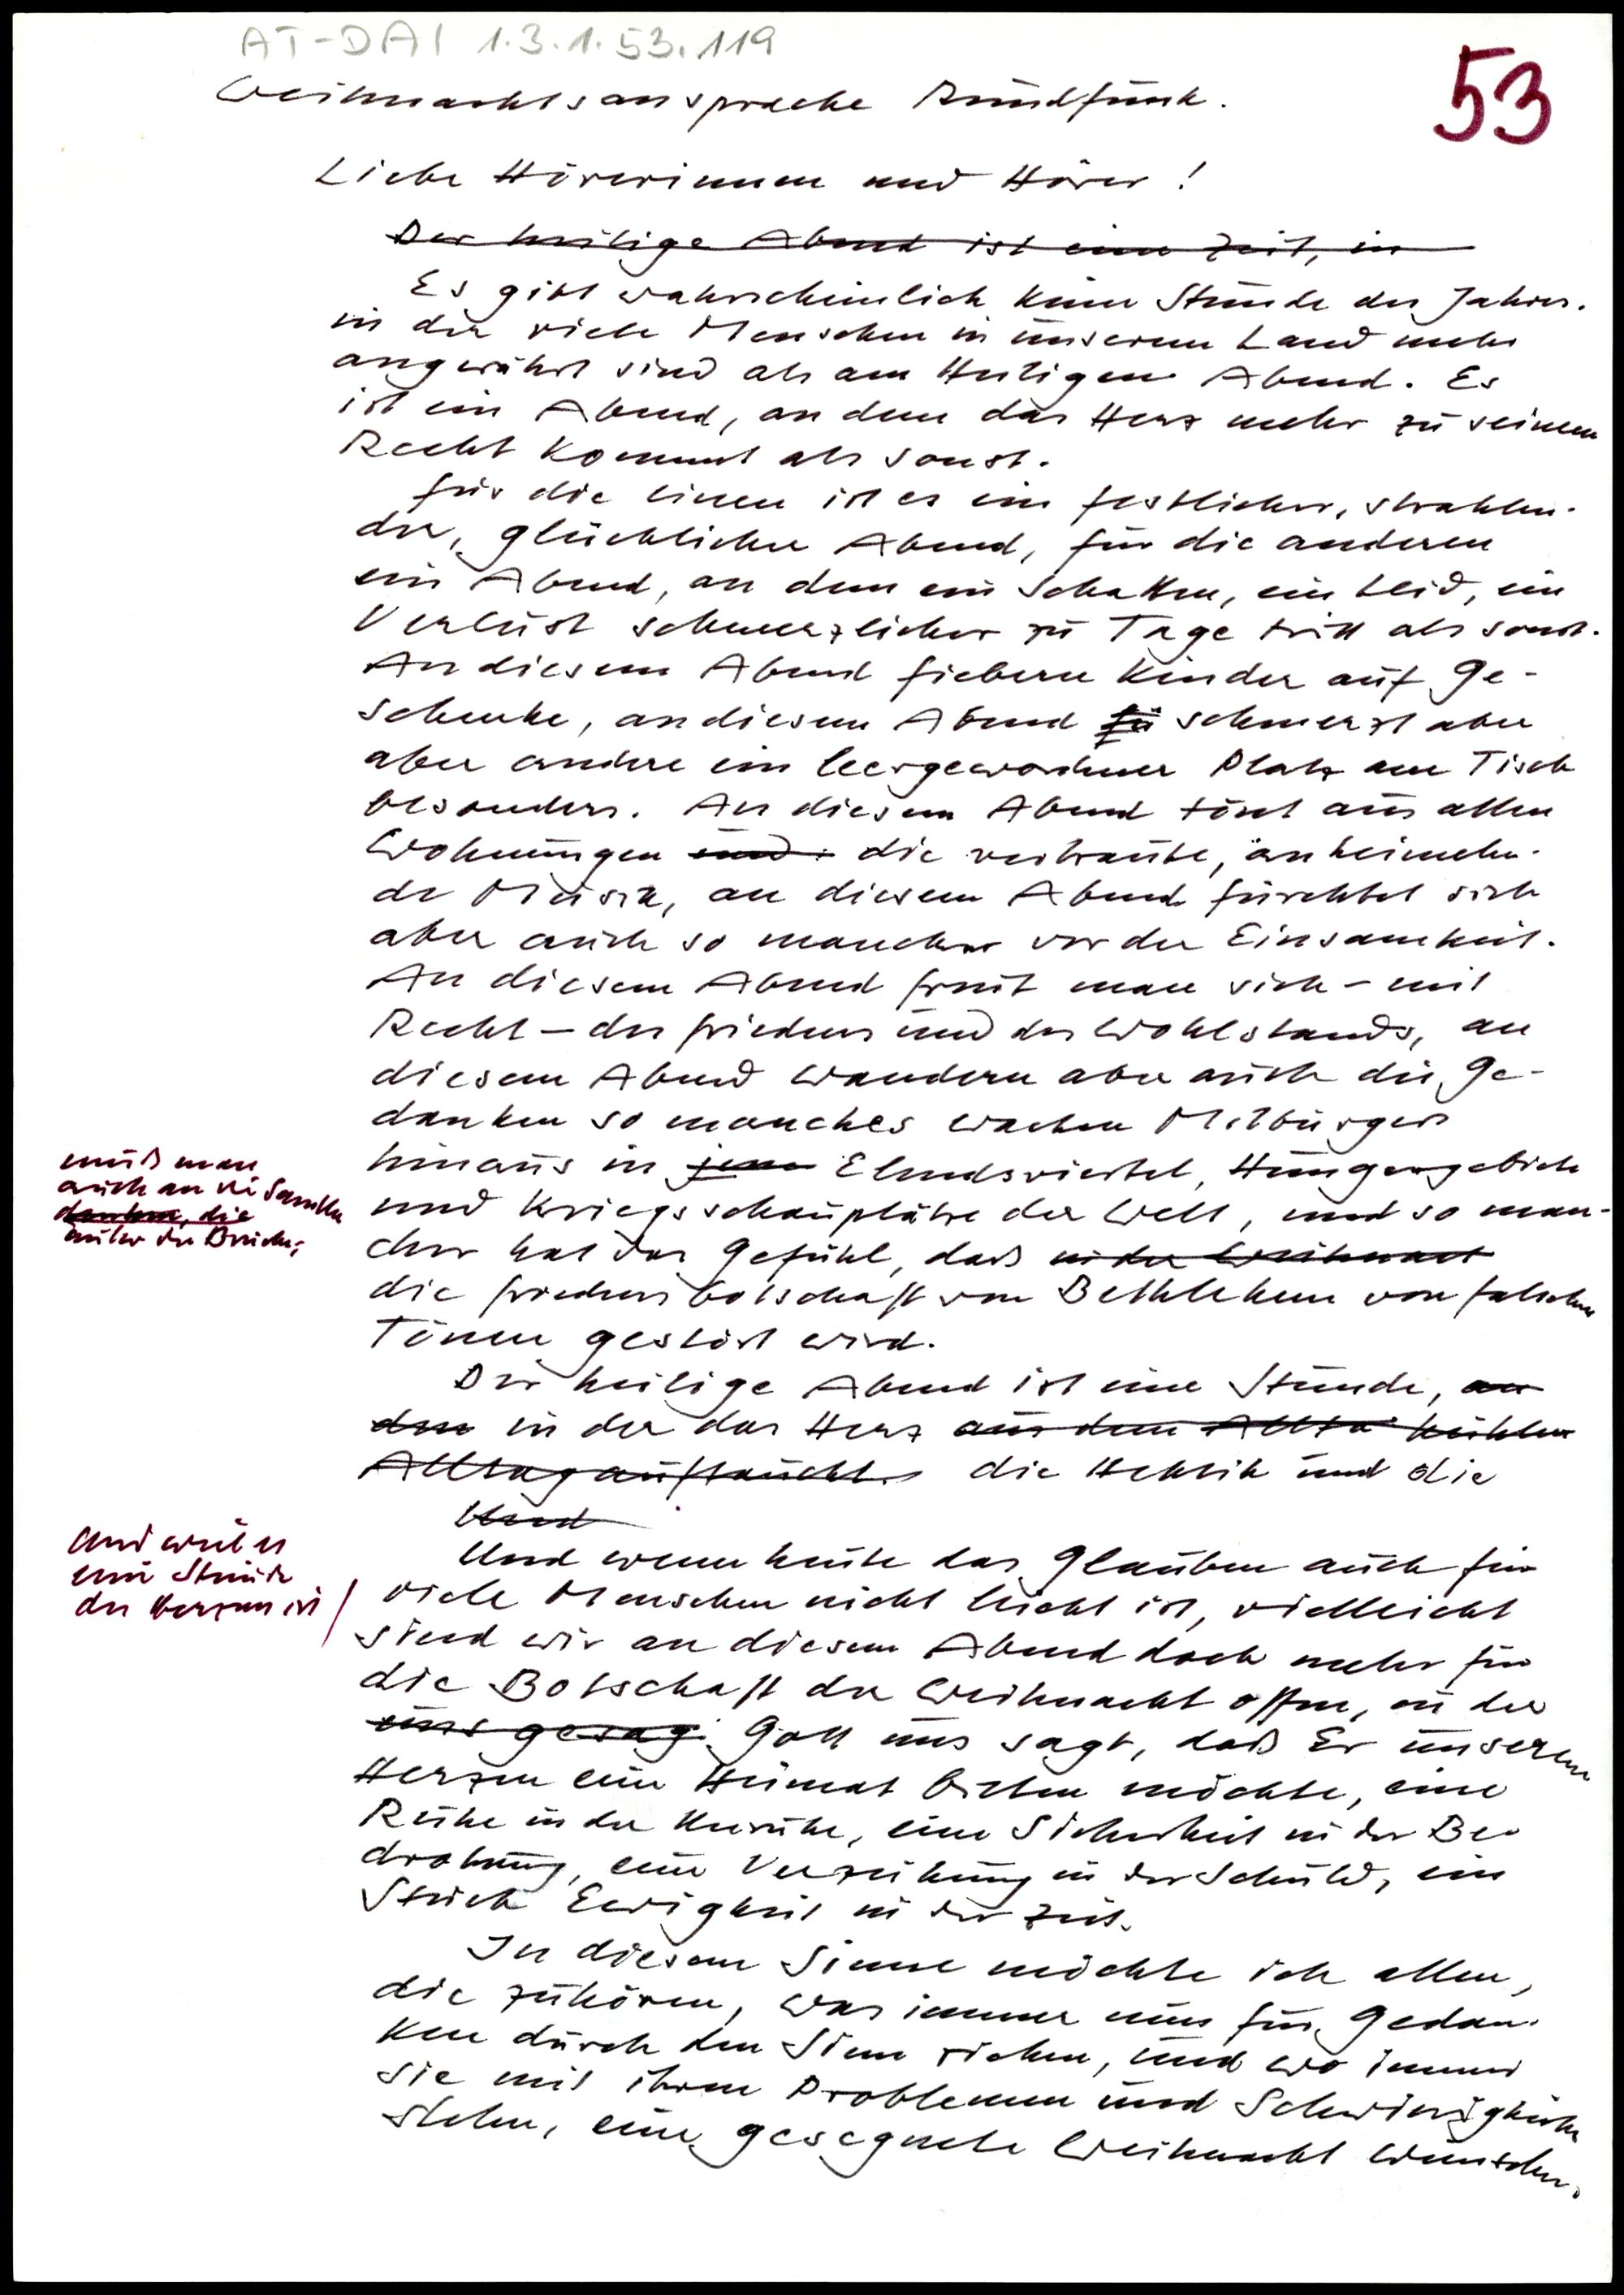 AT-DAI 1.3.1.53.119
53
Weihnachtsansprache Rundfunk.
Liebe Hörerinnen und Hörer!
Der heilige Abend ist eine Zeit, in
Es gibt wahrscheinlich keine Stunde des Jahres.
in der viele Menschen in unserem Land mehr
angerührt sind als am Heiligen Abend. Es
ist ein Abend, an dem das Herz mehr zu seinem
Recht kommt als sonst.
Für die einen ist es ein festlicher, strahlen-
der, glücklicher Abend, für die anderen
ein Abend, an dem ein Schatten, ein Leid, ein
Verlust schmerzlicher zu Tage tritt als sonst.
An diesem Abend fiebern Kinder auf Ge-
schenke, an diesem Abend fü schmerzt aber
aber andere ein leergewordener Platz am Tisch
besonders. An diesem Abend tönt aus allen
Wohnungen und die vertraute, anheimeln-
de Musik, an diesem Abend fürchtet sich
aber auch so mancher vor der Einsamkeit.
An diesem Abend freut man sich - mit
Recht - des Friedens und des Wohlstands, an
diesem Abend wandern aber auch die Ge-
danken so manches wachen Mitbürgers
hinaus in jene Elendsviertel, Hungergebiete
und Kriegsschauplätze der Welt, und so man-
cher hat das Gefühl, daß in der Weihnact
die Friedensbotschaft von Bethlehem von falschen
Tönen gestört wird.
muß man
auch an die Familie
denken, die
unter der Brücke
Die heilige Abend ist eine Stunde, an
dem in der das Herz aus dem Allta kühlen
Alltag auftaucht. die Hektik und die
Und
Und weil es
eine Stunde
des Herzens ist
Und wenn heute das Glauben auch für
viele Menschen nicht leicht ist, vielleicht
sind wir an diesem Abend doch mehr für
die Botschaft der Weihnacht offen, in der
uns gesag Gott uns sagt, daß Er unseren
Herzen eine Heimat bieten möchte, eine
Ruhe in der Unruhe, eine Sicherheit in der Be-
drohung, eine Verzeihung in der Schuld, ein
Stück Ewigkeit in der Zeit.
In diesem Sinne möchte ich allen,
die zuhören, was immer nun für Gedan-
ken durch den Sinn ziehen, und wo immer
sie mit ihren Problemen und Schwierigkeiten
stehen, eine gesegnete Weihnacht wünschen.